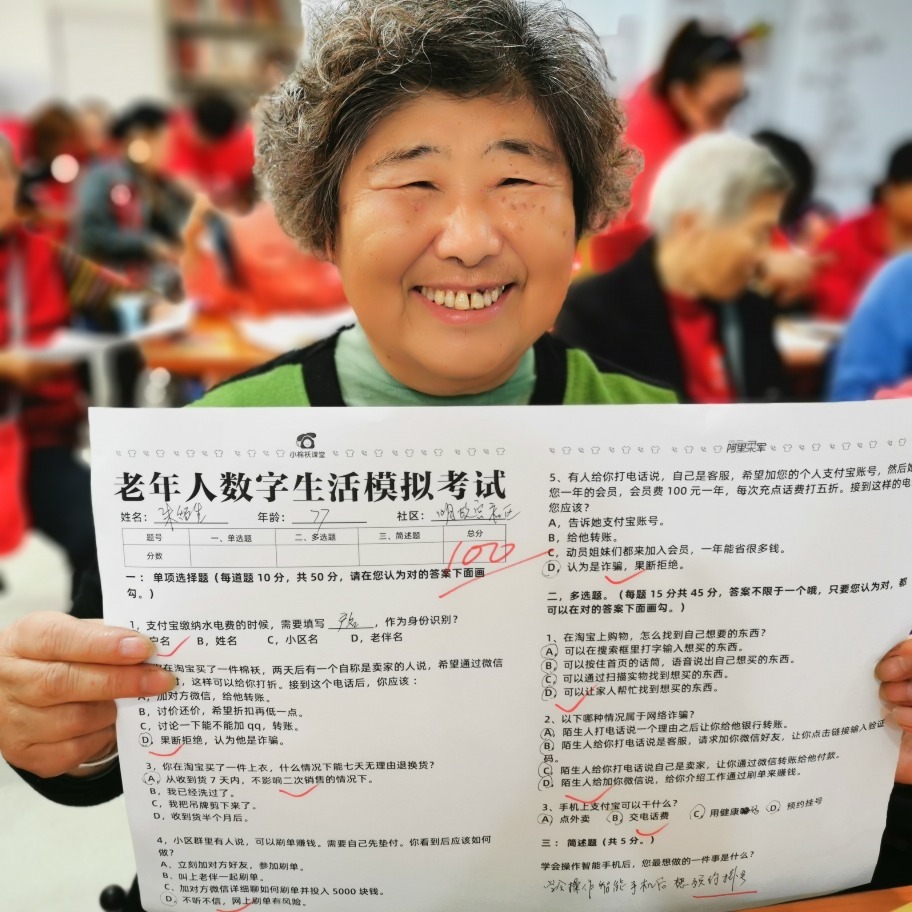 小棉袄课堂
老年人数字生活模拟考试
姓名: 年龄: 77 社区:
题号 一、单选题 二、多选题 三、简述题 总分
分数 100
一：单项选择题（每道题 10 分，共 50 分，请在您认为对的答案下面画
勾。）
1，支付宝缴纳水电费的时候，需要填写 ，作为身份识别？
户名 B，姓名 C，小区名 D，老伴名
在淘宝买了一件棉袄，两天后有一个自称是卖家的人说，希望通过微信
，这样可以给你打折。接到这个电话后，你应该：
A，加对方微信，给他转账。
B，讨价还价，希望折扣再低一点。
C，讨论一下能不能加 qq，转账。
D，果断拒绝，认为他是诈骗。
3，你在淘宝买了一件上衣，什么情况下能七天无理由退换货？
A，从收到货 7 天内，不影响二次销售的情况下。
B，我已经洗过了。
C，我把吊牌剪下来了。
D，收到货半个月后。
4，小区群里有人说，可以刷单赚钱。需要自己先垫付。你看到后应该如何
做？
A，立刻加对方好友，参加刷单。
B，叫上老伴一起刷单。
C，加对方微信详细聊如何刷单并投入 5000 块钱。
D，不听不信，网上刷单有风险。
阿里米军
5，有人给你打电话说，自己是客服，希望加您的个人支付宝账号，然后
您一年的会员，会员费 100 元一年，每次充点话费打五折。接到这样的电
您应该？
A，告诉她支付宝账号。
B，给他转账。
C，动员姐妹们都来加入会员，一年能省很多钱。
D，认为是诈骗，果断拒绝。
二，多选题。（每题 15 分共 45 分，答案不限于一个哦，只要您认为对，都
可以在对的答案下面画勾。）
1，在淘宝上购物，怎么找到自己想要的东西？
A，可以在搜索框里打字输入想买的东西。
B，可以按住首页的话筒，语音说出自己想买的东西。
C，可以通过扫描实物找到想买的东西。
D，可以让家人帮忙找到想买的东西。
2，以下哪种情况属于网络诈骗？
A，陌生人打电话说一个理由之后让你给他银行转账。
B，陌生人给你打电话说是客服，请求加你微信好友，让你点击链接输入验证
码。
C，陌生人给你打电话说自己是卖家，让你通过微信转账给他付款。
D，陌生人给加你微信说，给你介绍工作通过刷单来赚钱。
3，手机上支付宝可以干什么？
A，点外卖 B，交电话费 C，用健康 D，预约挂号
三：简述题（共 5 分。）
学会操作智能手机后，您最想做的一件事是什么？
学会操作智能手机后想预约挂号